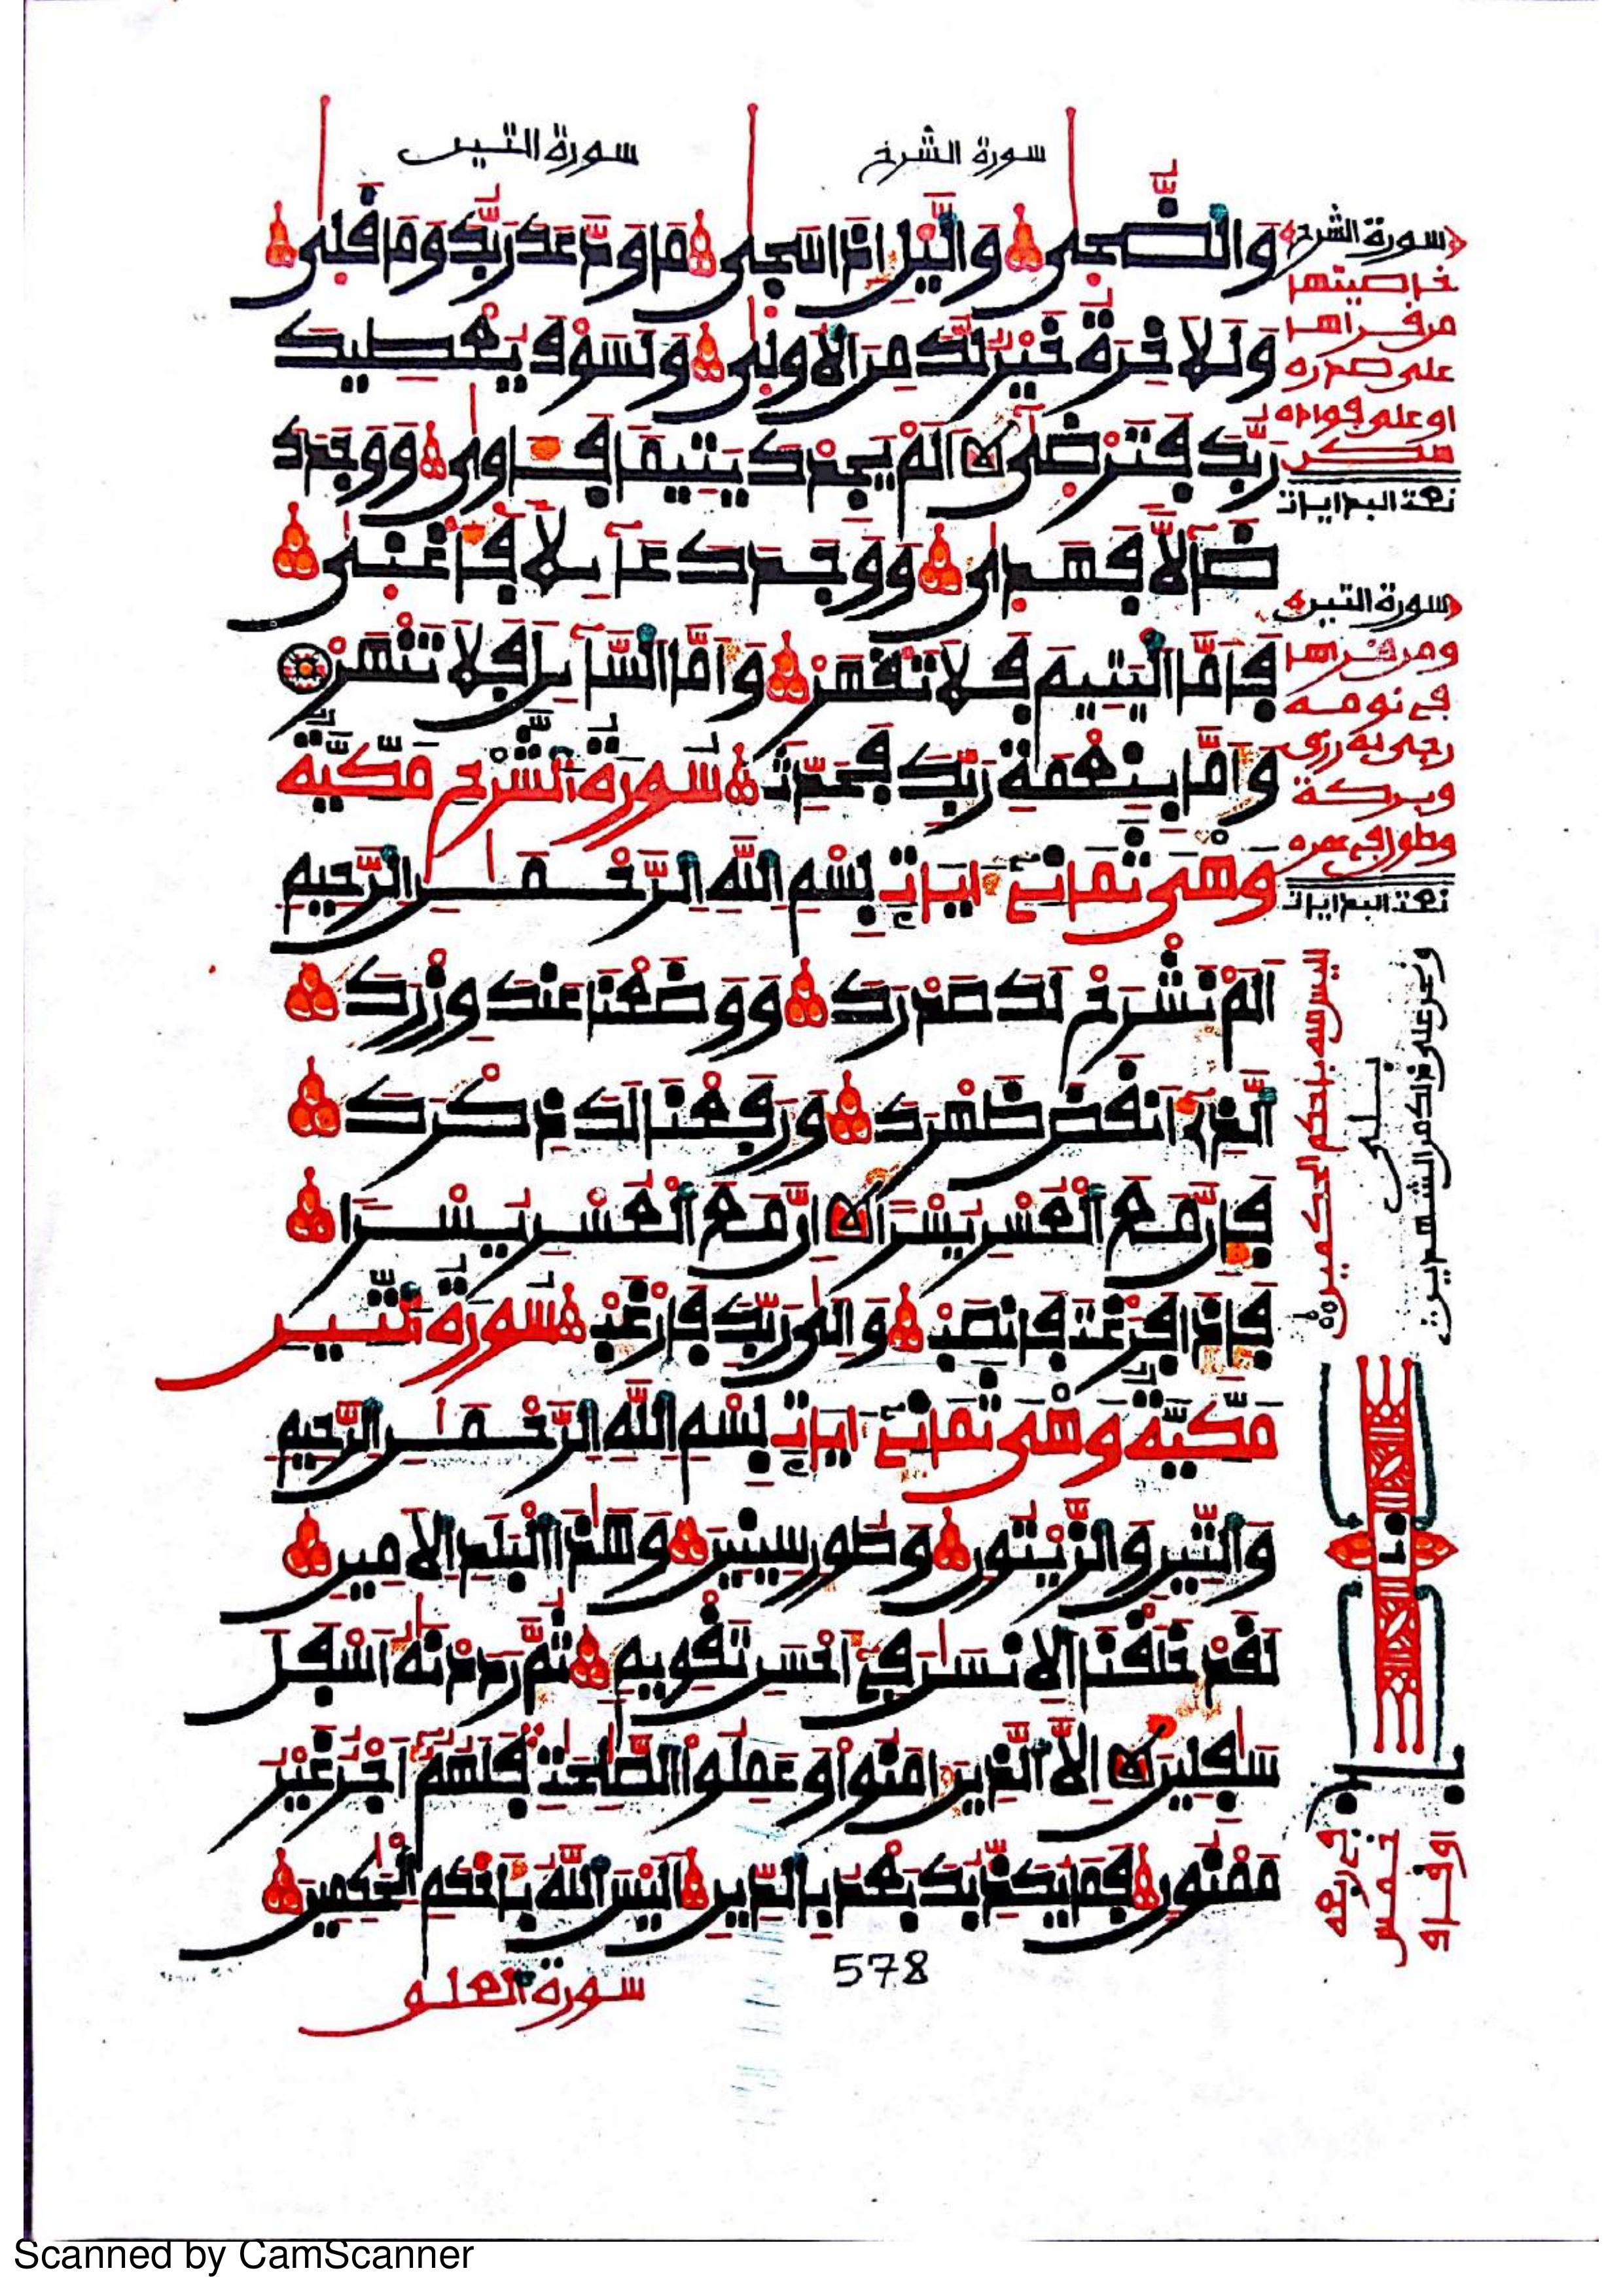 سورة الشرح
سورة التين
وَالضُّحَىٰ وَالَّيْلِ إِذَا سَجَىٰ مَا وَدَّعَكَ رَبُّكَ وَمَا قَلَىٰ
وَلَلَاخِرَةُ خَيْرٌ لَّكَ مِنَ الُاولَىٰ وَلَسَوْفَ يُعْطِيكَ
رَبُّكَ فَتَرْضَىٰ أَلَمْ يَجِدْكَ يَتِيمًا فَـَٔاوَىٰ وَوَجَدَكَ
ضَآلًّا فَهَدَىٰ وَوَجَدَكَ عَآئِلًا فَأَغْنَىٰ
فَأَمَّا الْيَتِيمَ فَلَا تَقْهَرْ وَأَمَّا السَّآئِلَ فَلَا تَنْهَرْ
وَأَمَّا بِنِعْمَةِ رَبِّكَ فَحَدِّثْ سُورَةُ الشَّرْحِ مَكِّيَّةٌ
وَهْيَ ثَمَانِي ءَايَاتٍ بِسْمِ اللَّهِ الرَّحْمَٰنِ الرَّحِيمِ
أَلَمْ نَشْرَحْ لَكَ صَدْرَكَ وَوَضَعْنَا عَنكَ وِزْرَكَ
الَّذِي أَنقَضَ ظَهْرَكَ وَرَفَعْنَا لَكَ ذِكْرَكَ
فَإِنَّ مَعَ الْعُسْرِ يُسْرًا إِنَّ مَعَ الْعُسْرِ يُسْرًا
فَإِذَا فَرَغْتَ فَانصَبْ وَإِلَىٰ رَبِّكَ فَارْغَبْ سُورَةُ التِّينِ
مَكِّيَّةٌ وَهْيَ ثَمَانِي ءَايَاتٍ بِسْمِ اللَّهِ الرَّحْمَٰنِ الرَّحِيمِ
وَالتِّينِ وَالزَّيْتُونِ وَطُورِ سِينِينَ وَهَٰذَا الْبَلَدِ الَامِينِ
لَقَدْ خَلَقْنَا الِانسَٰنَ فِي أَحْسَنِ تَقْوِيمٍ ثُمَّ رَدَدْنَٰهُ أَسْفَلَ
سَٰفِلِينَ إِلَّا الَّذِينَ ءَامَنُوا وَعَمِلُوا الصَّٰلِحَٰتِ فَلَهُمُ أَجْرٌ غَيْرُ
مَمْنُونٍ فَمَا يُكَذِّبُكَ بَعْدُ بِالدِّينِ أَلَيْسَ اللَّهُ بِأَحْكَمِ الْحَٰكِمِينَ
578
سورة العلق
سورة الشرح
خاصيتها
من قرأها
على صدره
او على فؤاده
سكن
سورة التين
ومن قرأها
في نومه
رزق
وبركة
وطول في عمره
اليس الله باحكم الحكمين
بلى
ونحن على ذلك من الشهدين
Scanned by CamScanner